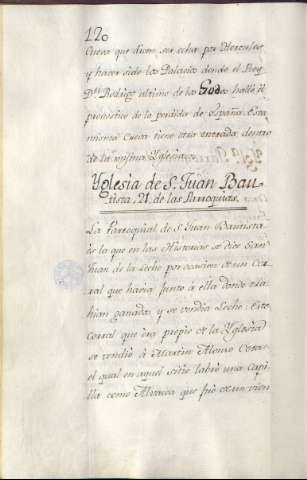 120
Cueva que dicen ser echa por Hercules
y haver sido los Palacios donde el Rey
Dn Rodrigo ultimo de los Godos halló el
pronostico de la perdida de España. Esta
misma Cueva tiene otra entrada dentro
de la misma Yglesia.
Yglesia de S. Juan Bau
tista, 21, de las Parroquias.
La Parroquial de S. Juan Bautista
es la que en las Historias se dice San
Juan de la Leche por ocasion de un Cor
ral que havia junto á ella donde esta
bian ganados y se vendia Leche. Este
Corral que era propio de la Yglesia
se vendió á Martin Alonso Cota
el qual en aquel sitio labró una Capi
lla como Alvacea que fué de un